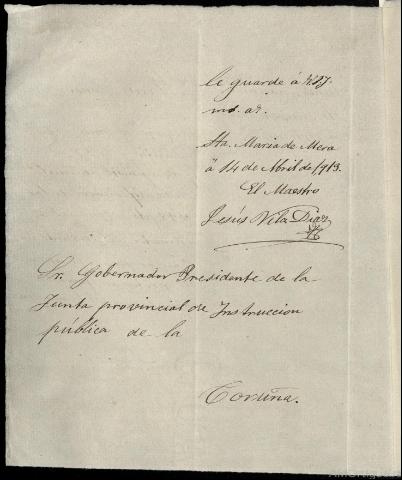 le guarde á V.S.
ms. as.
Sta. Maria de Mera
á 14 de Abril de 1913.
El Maestro
Jesús Vila Diaz
Sr. Gobernador Presidente de la
Junta provincial de Instruccion
pública de la
Coruña.